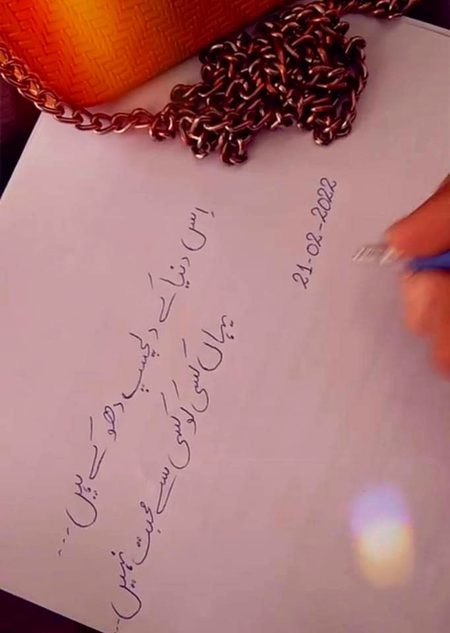 21-02-2022
اِس دنیا کے دلچسپ دھوکے ہیں...
یہاں کسی کو کسی سے محبت نہیں...